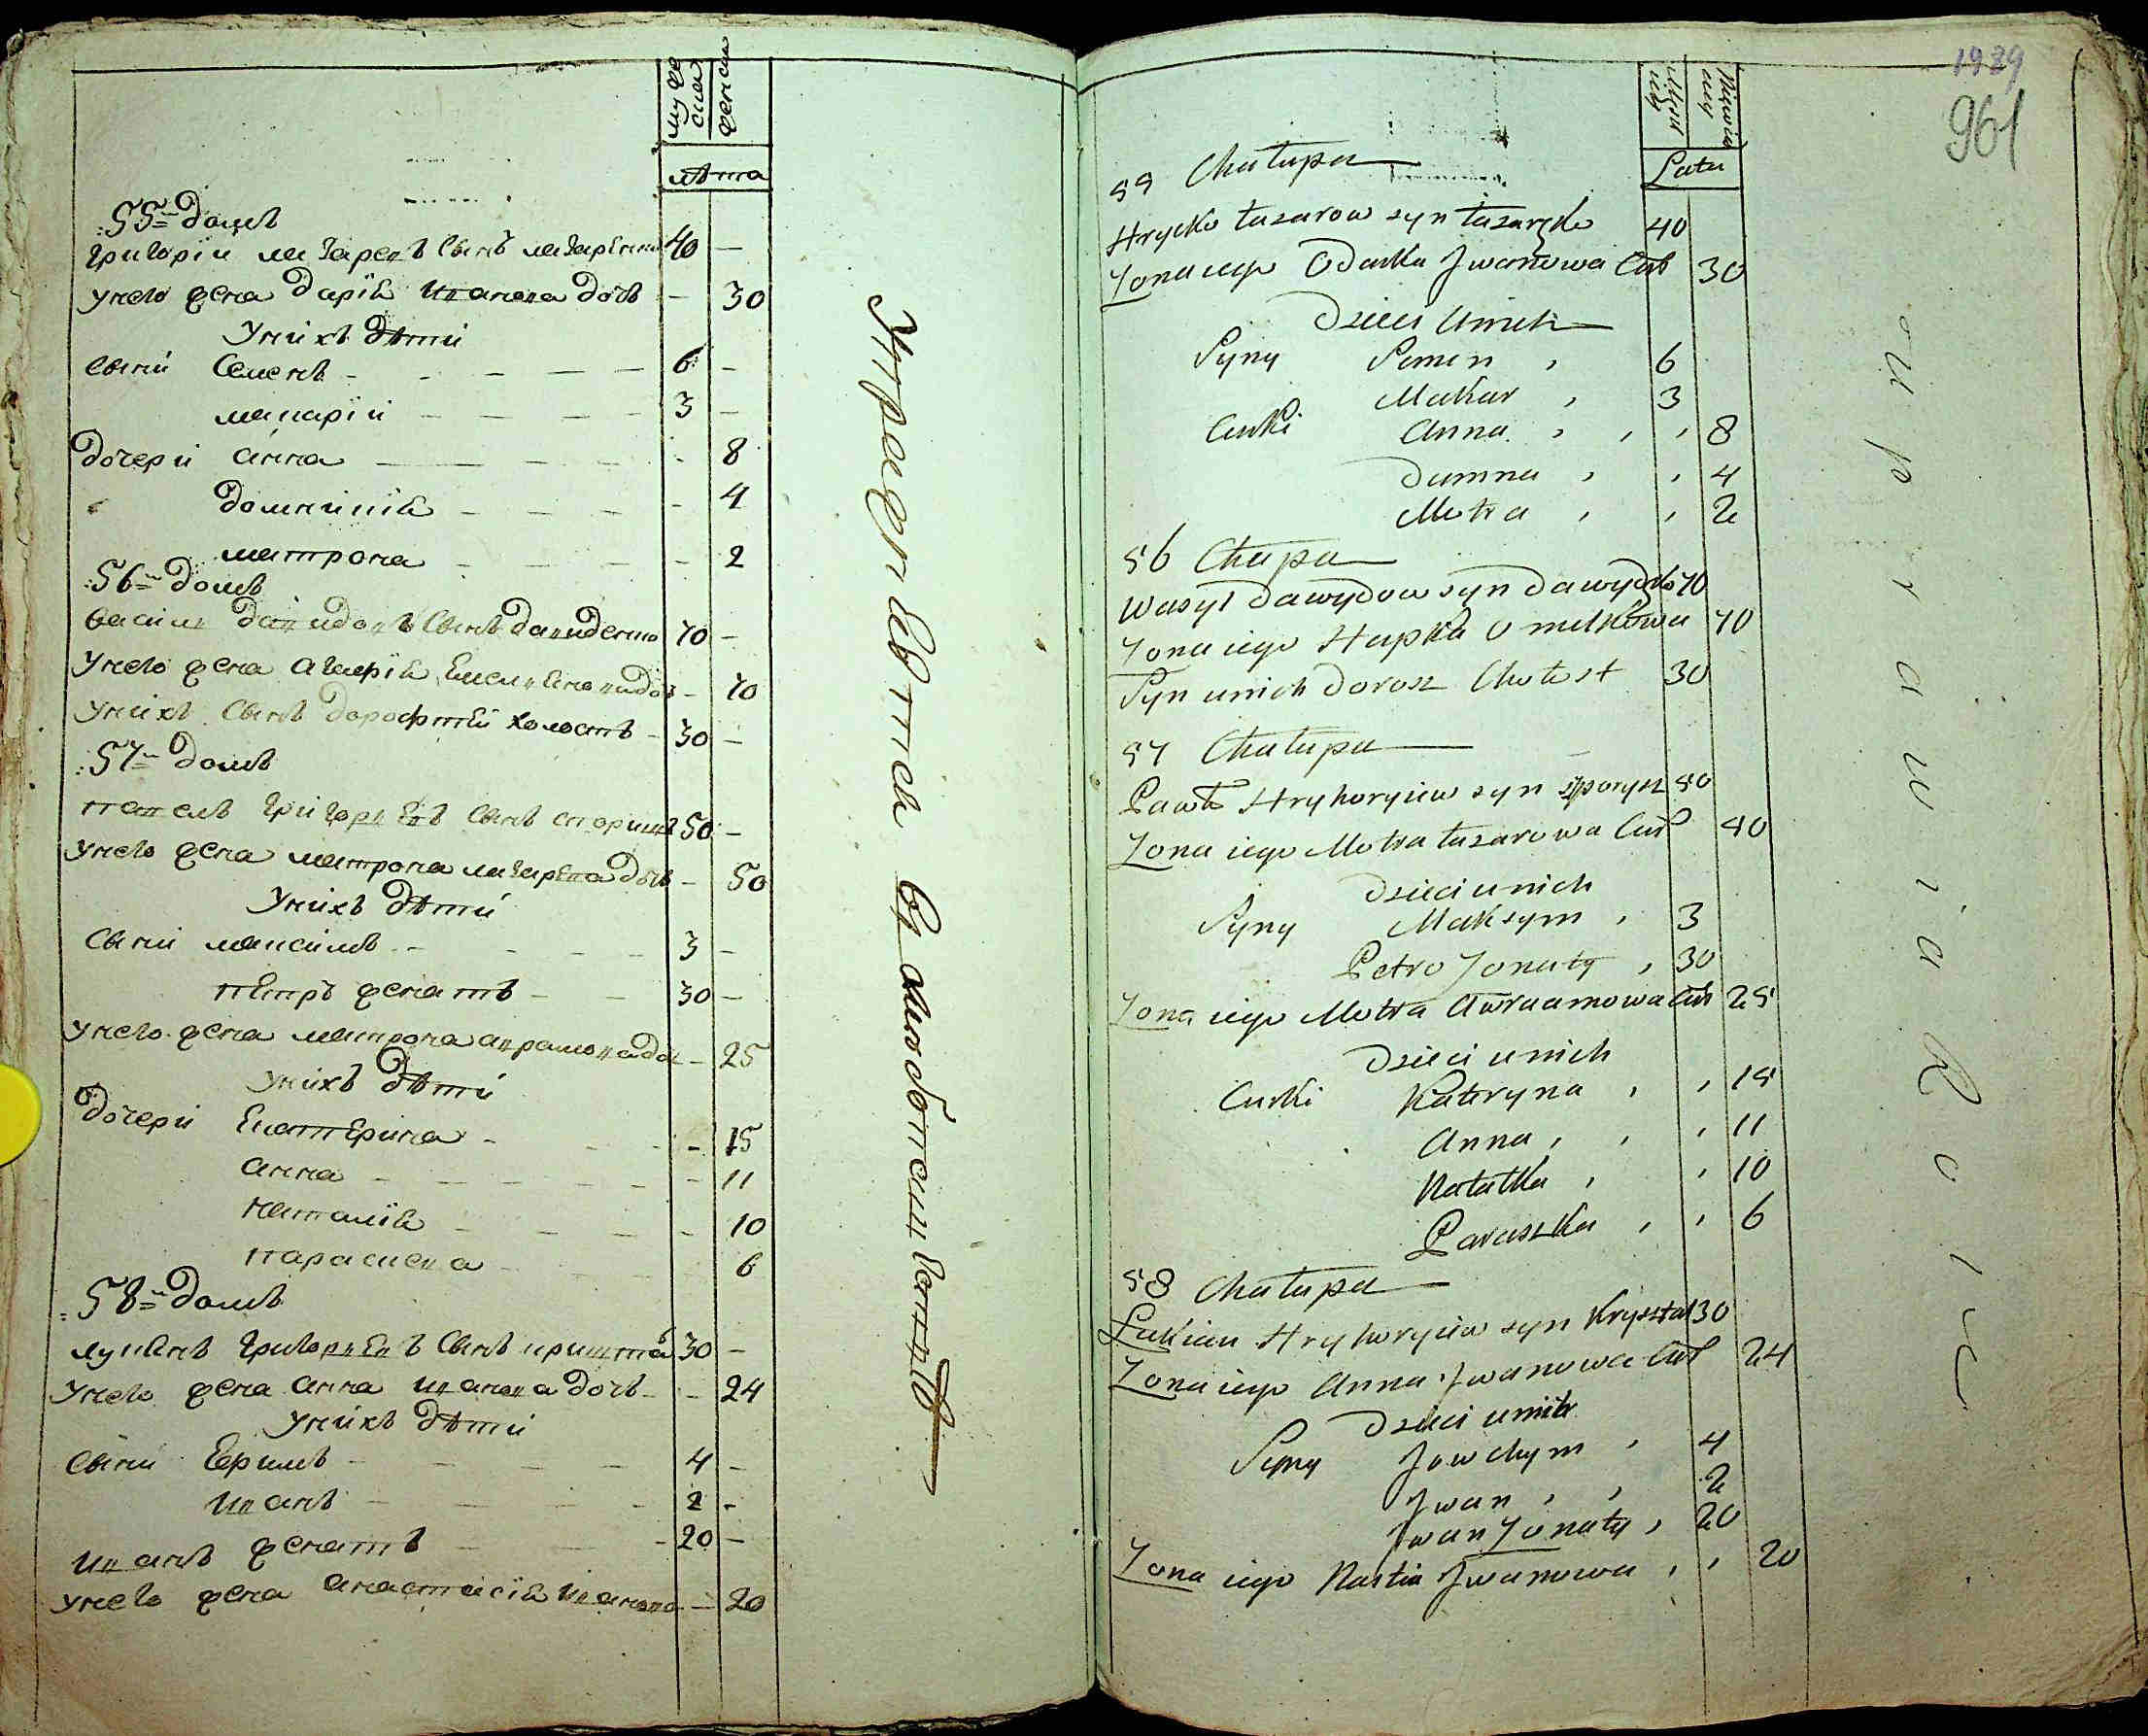 мужеска
женска
лѣта
55й домъ
Григорїи лазаревъ сынъ лазаренко 40 —
Унего жена дарїя Иванова дочь — 30
Унихъ дѣти
сыни Семенъ — 6 —
макарїй — 3 —
дочери анна — 8
домникія — 4
матрона — 2
56й домъ
василь давидовъ сынъ давиденко 70 —
Унего жена агафїя Емельянова дочь — 70
Унихъ сынъ дорофтей холостъ — 30 —
57й домъ
павелъ григорьевъ сынъ споришъ 50 —
Унего жена матрона лазарева дочь — 50
Унихъ дѣти
сыни максимъ — 3 —
пётръ женатъ — 30 —
Унего жена матрона аврамова доч — 25
Унихъ дѣти
дочери Екатерина — 15
анна — 11
наталїя — 10
параскева 6
58й домъ
лукянъ григорьевъ сынъ кришталь 30 —
Унего жена анна иванова дочь — 24
Унихъ дѣти
сыни Ефимъ — 4 —
иванъ — 2 —
иванъ женатъ — 20 —
Унего жена анастасїя иванова — 20
1929
961
Latu
55 Chałupa
Hrycko Łazarow syn Łazarenko 40
Zona iego Odarka Jwanowa Cur 30
Dzieci Unich
Syny Semen , 6
Makar , 3
Curki Anna , , , 8
Dumna , , 4
Motra , , 2
56 Chapa
Wasyl Dawydow syn Dawydko 70
Zona iego Hapka Omelkowa 70
Syn unich Dorosz Chołost 30
57 Chałupa
Pawło Hryhoryiew syn Sporysz 50
Zona iego Motra Łazarowa Cur 40
Dzieci unich
Syny Maksym , 3
Petro Zonaty , 30
Zona iego Motra Awraamowa Cur 25
Dzieci unich
Curki Kateryna , , 15
Anna , , , 11
Natałka , , 10
Paraszka , , 6
58 Chałupa
Łukian Hryhoryiew syn Krysztal 30
Zona iego Anna Jwanowa Cur 24
Dzieci unich
Syny Jowchym , 4
Jwan , , 2
Jwan Zonaty , 20
Zona iego Nastia Jwanowa , , 20